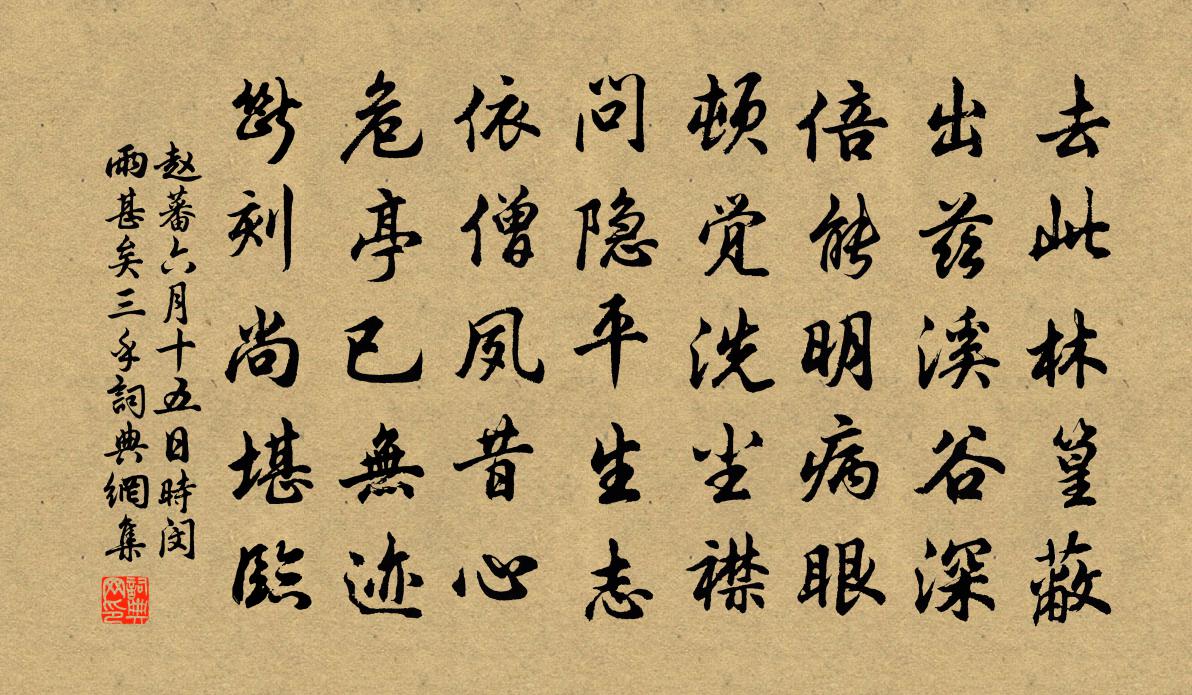 去此林篁蔽
出兹溪谷深
倍能明病眼
顿觉洗尘襟
问隐平生志
依僧夙昔心
危亭已無迹
断刻尚堪臨
赵蕃六月十五日時闵
雨甚矣三手詞典網集
詞典
网印